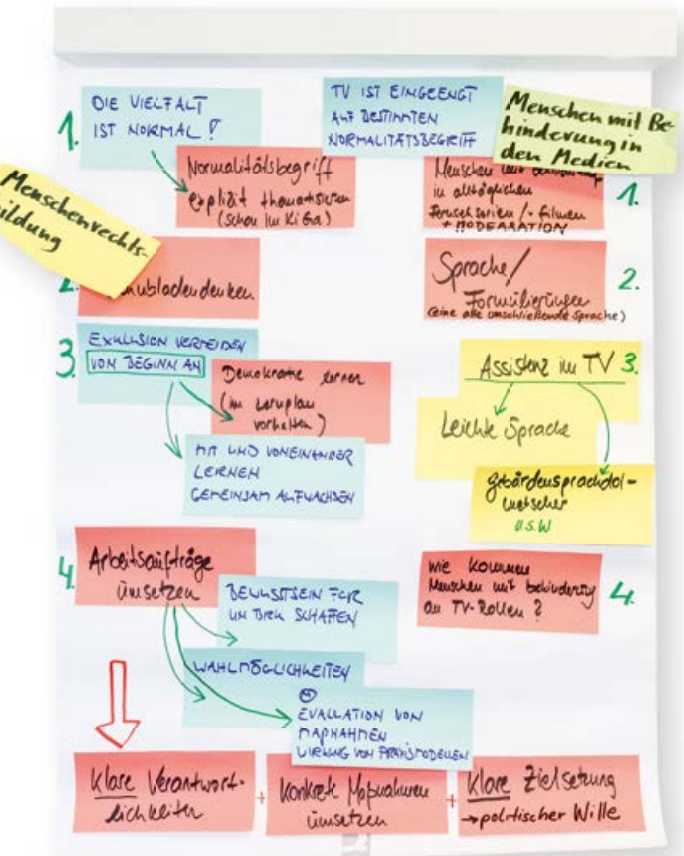 Menschenrechts-
bildung
1.
DIE VIELFALT
IST NORMAL!
Normalitätsbegriff
explizit thematisieren
(schon im KiGa)
2.
ubladendenken
3.
EXKLUSION VERMEIDEN
VON BEGINN AN
Demokratie lernen
(im Lernplan
vorhalten)
MIT UND VONEINANDER
LERNEN
GEMEINSAM AUFWACHSEN
4.
Arbeitsaufträge
umsetzen
BEWUSSTSEIN FÜR
UN BRK SCHAFFEN
WAHLMÖGLICHKEITEN
EVALUATION VON
MAßNAHMEN
WIRKUNG VON PRAXISMODELLEN
Klare Verantwort-
lichkeiten
+
Konkrete Maßnahmen
umsetzen
+
Klare Zielsetzung
→ politischer Wille
TV IST EINGEENGT
AUF BESTIMMTEN
NORMALITÄTSBEGRIFF
Menschen mit Be-
hinderung in
den Medien
1.
Menschen mit
in alltäglichen
Fernsehserien/-filmen
+ MODERATION
2.
Sprache/
Formulierungen
(eine alle umschließende Sprache)
3.
Assistenz im TV
Leichte Sprache
Gebärdensprachdol-
metscher
U.S.W
4.
Wie kommen
Menschen mit behinderung
an TV-Rollen?